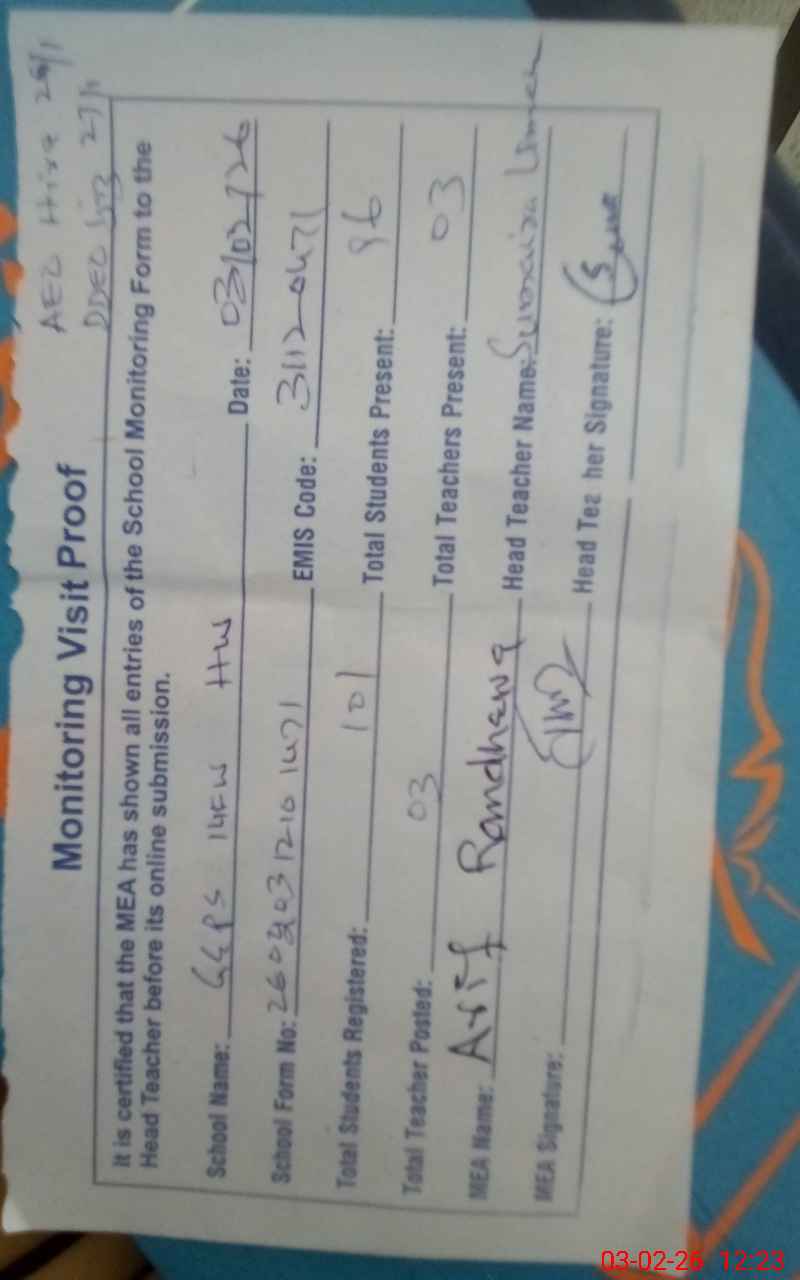 AEO Hira 26/1
DDEO 27/1
Monitoring Visit Proof
It is certified that the MEA has shown all entries of the School Monitoring Form to the
Head Teacher before its online submission.
School Name: GGPS 14FW HW Date: 03/02/26
School Form No: EMIS Code: 31120471
Total Students Registered: 101 Total Students Present: 96
Total Teacher Posted: 03 Total Teachers Present: 03
MEA Name: Arif Randhawa Head Teacher Name: Sumaira
MEA Signature: Head Teacher Signature:
03-02-26 12:23